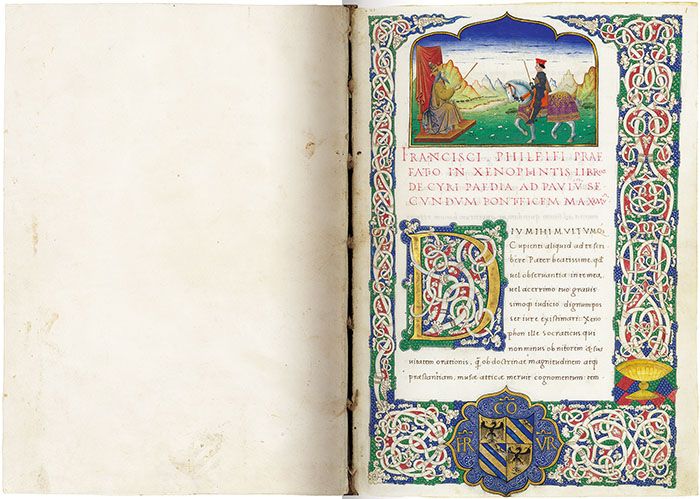 FRANCISCI. PHILELFI PRAE
FATIO IN XENOPHONTIS LIBRO
DE CYRI PAEDIA AD PAVLVM SE
CVNDVM PONTIFICEM MAX
DIV MIHI MVLTVMQ
Cupienti aliquid ad te scri
bere Pater beatissime, qd
uel obseruantia in te mea,
uel acerrimo tuo grauis
simoq iudicio dignum pos
set iure existimari: Xeno
phon ille socraticus qui
non minus ob nitorem & sua
uitatem orationis, q ob doctrinae magnitudinem atq
praestantiam, musae atticae meruit cognomentum: tem
CO
FR VR